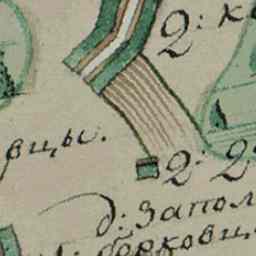 2: к
вцы.
2: 2
д: запол
борковц